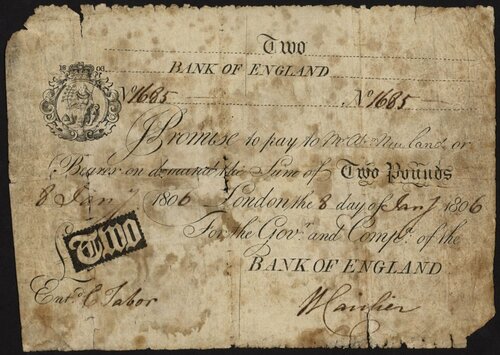 Two
BANK OF ENGLAND
18 06
No 1685 No 1685
I Promise to pay to Mr Abm Newland or
Bearer on demand the Sum of Two Pounds
8 Jany 1806 London the 8 day of Jany 1806
For the Govr. and Compa. of the
£ Two
BANK OF ENGLAND
Entd. C Tabor